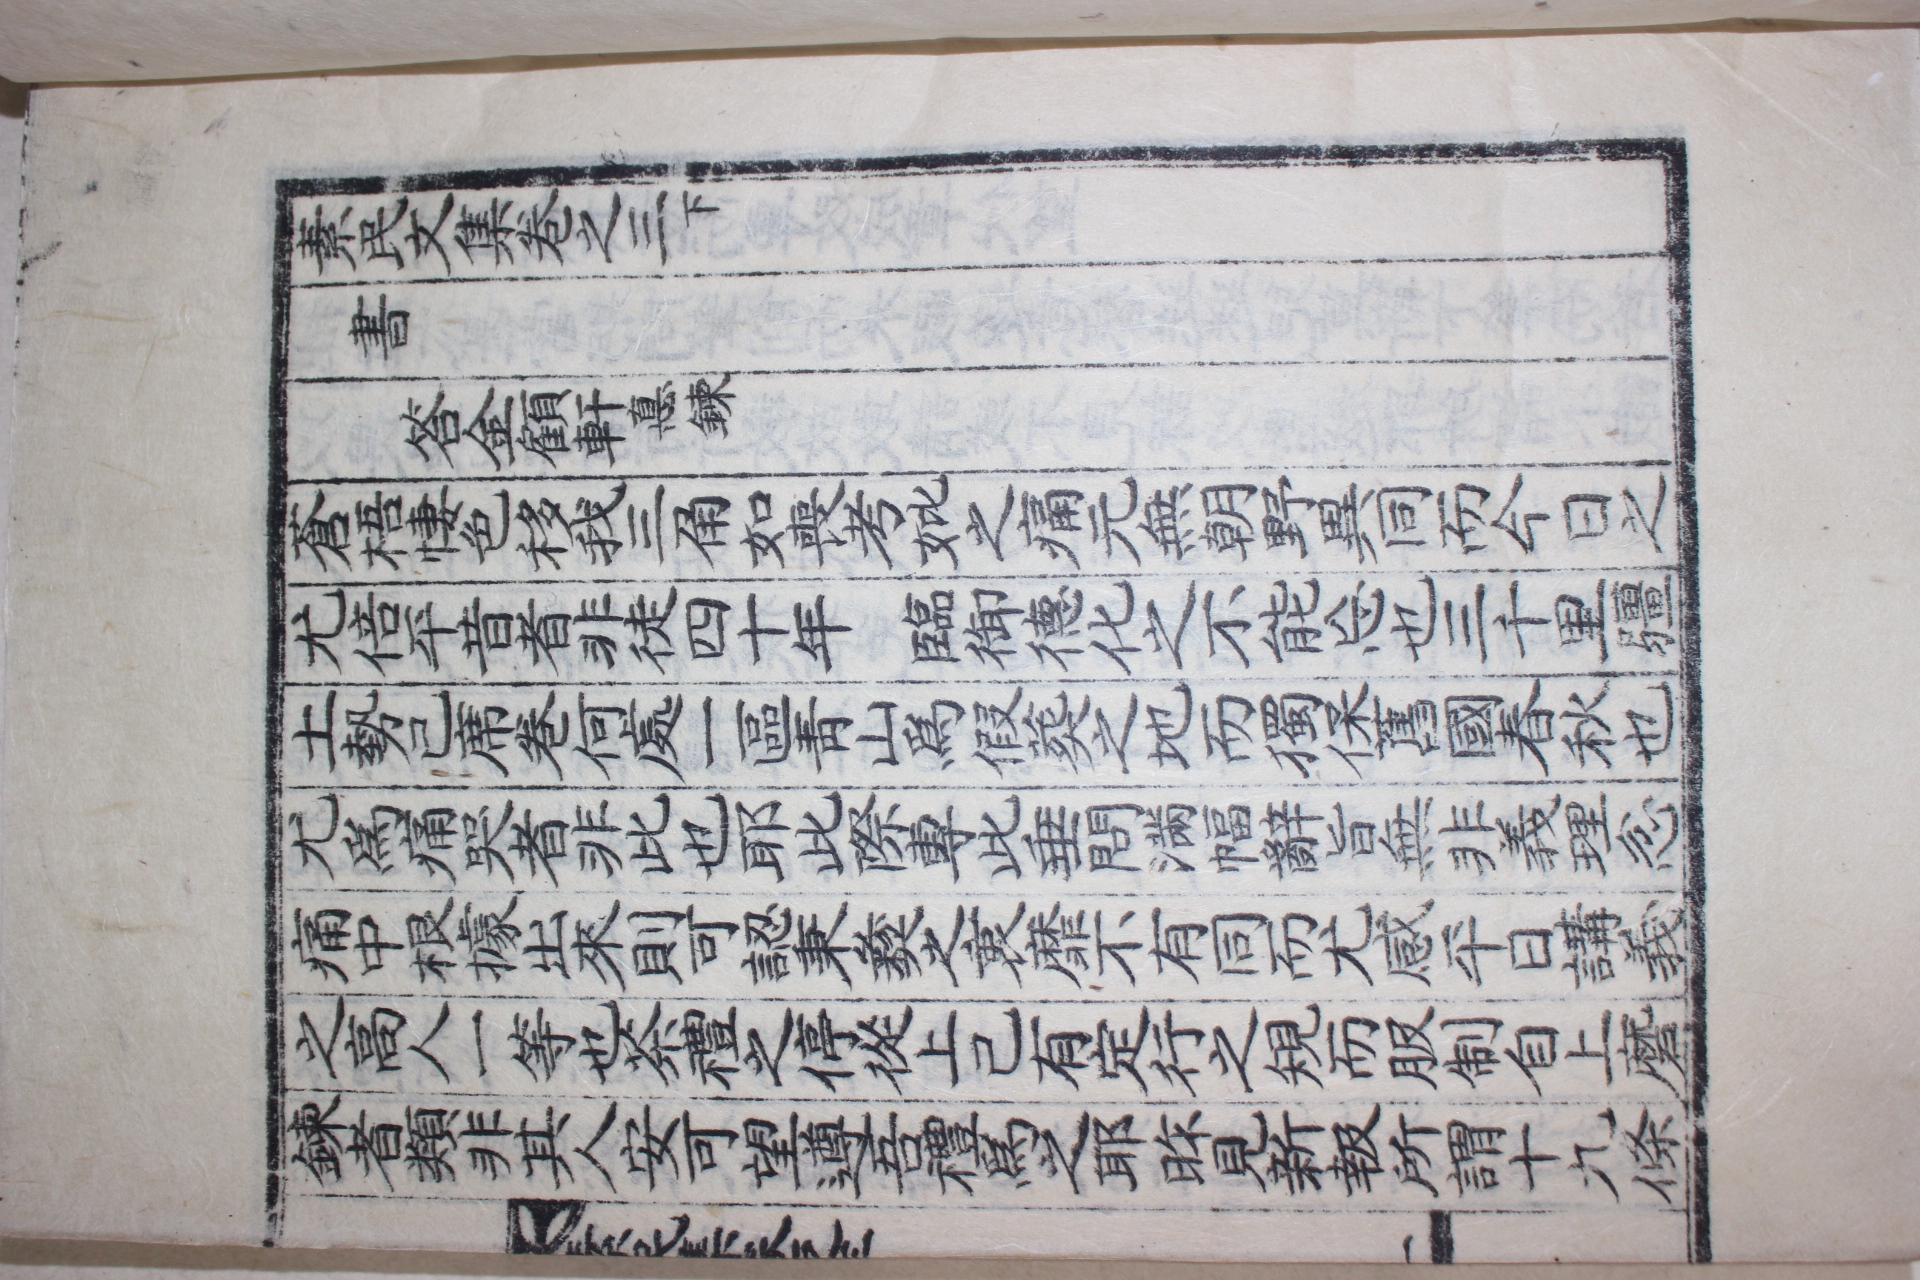 素民文集卷之三下
書
答金顧軒悳鍊
蒼梧悽色移我三角如喪考妣之痛元無朝野異同而今日之
尤倍平昔者非徒四十年 臨御德化之不能忘也三千里疆
土勢已席卷何處一區靑山爲假葬之地而獨保舊國春秋也
尤爲痛哭者非此也耶此際專此垂問滿幅辭旨無非義理忿
痛中根據出來則可認秉彝之衷靡不有同而尤感平日講義
之高人一等也茶禮之停從上已有定行之規而服制自上磨
鍊者類非其人安可望遵吾禮爲之耶昨見新報所謂十九條